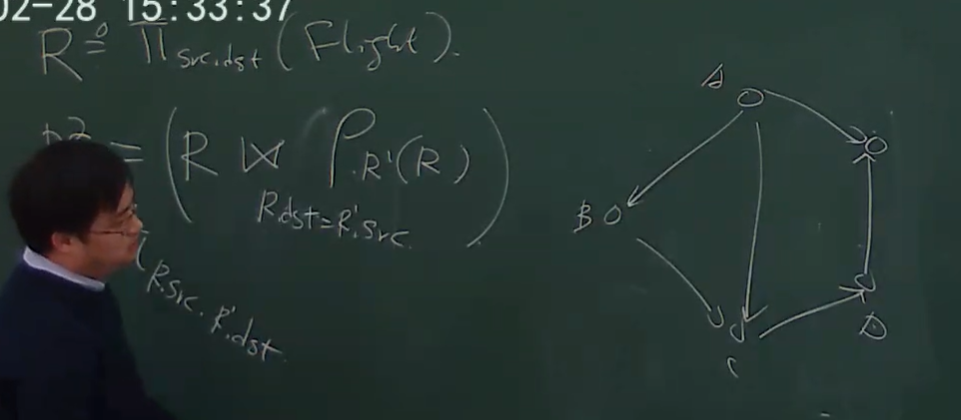 02-28 15:33:37
R ≐ Π src.dst (Flight).
= (R ⋈ ρ R'(R))
R.dst=R'.src
R.src. R'.dst
A
B
C
D